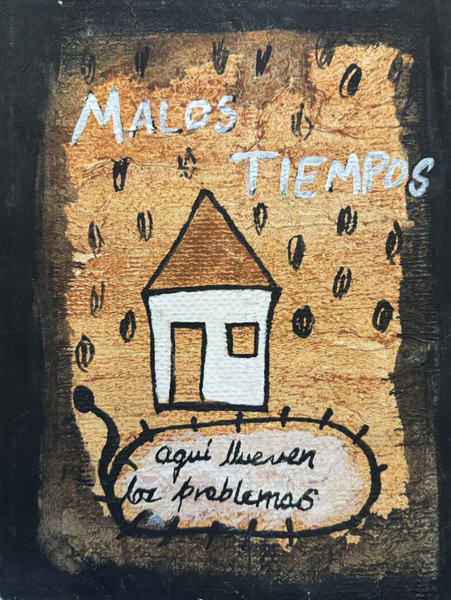 MALOS
TIEMPOS
aquí llueven
los problemas